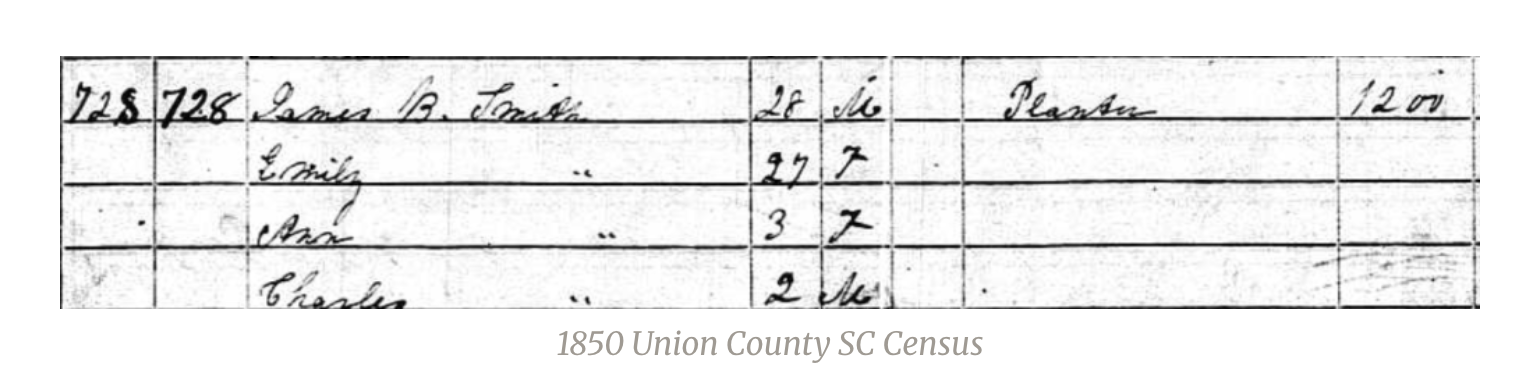 728 728 James B. Smith 28 M Planter 1200
Emily " 27 F
Ann " 3 F
Charles " 2 M
1850 Union County SC Census